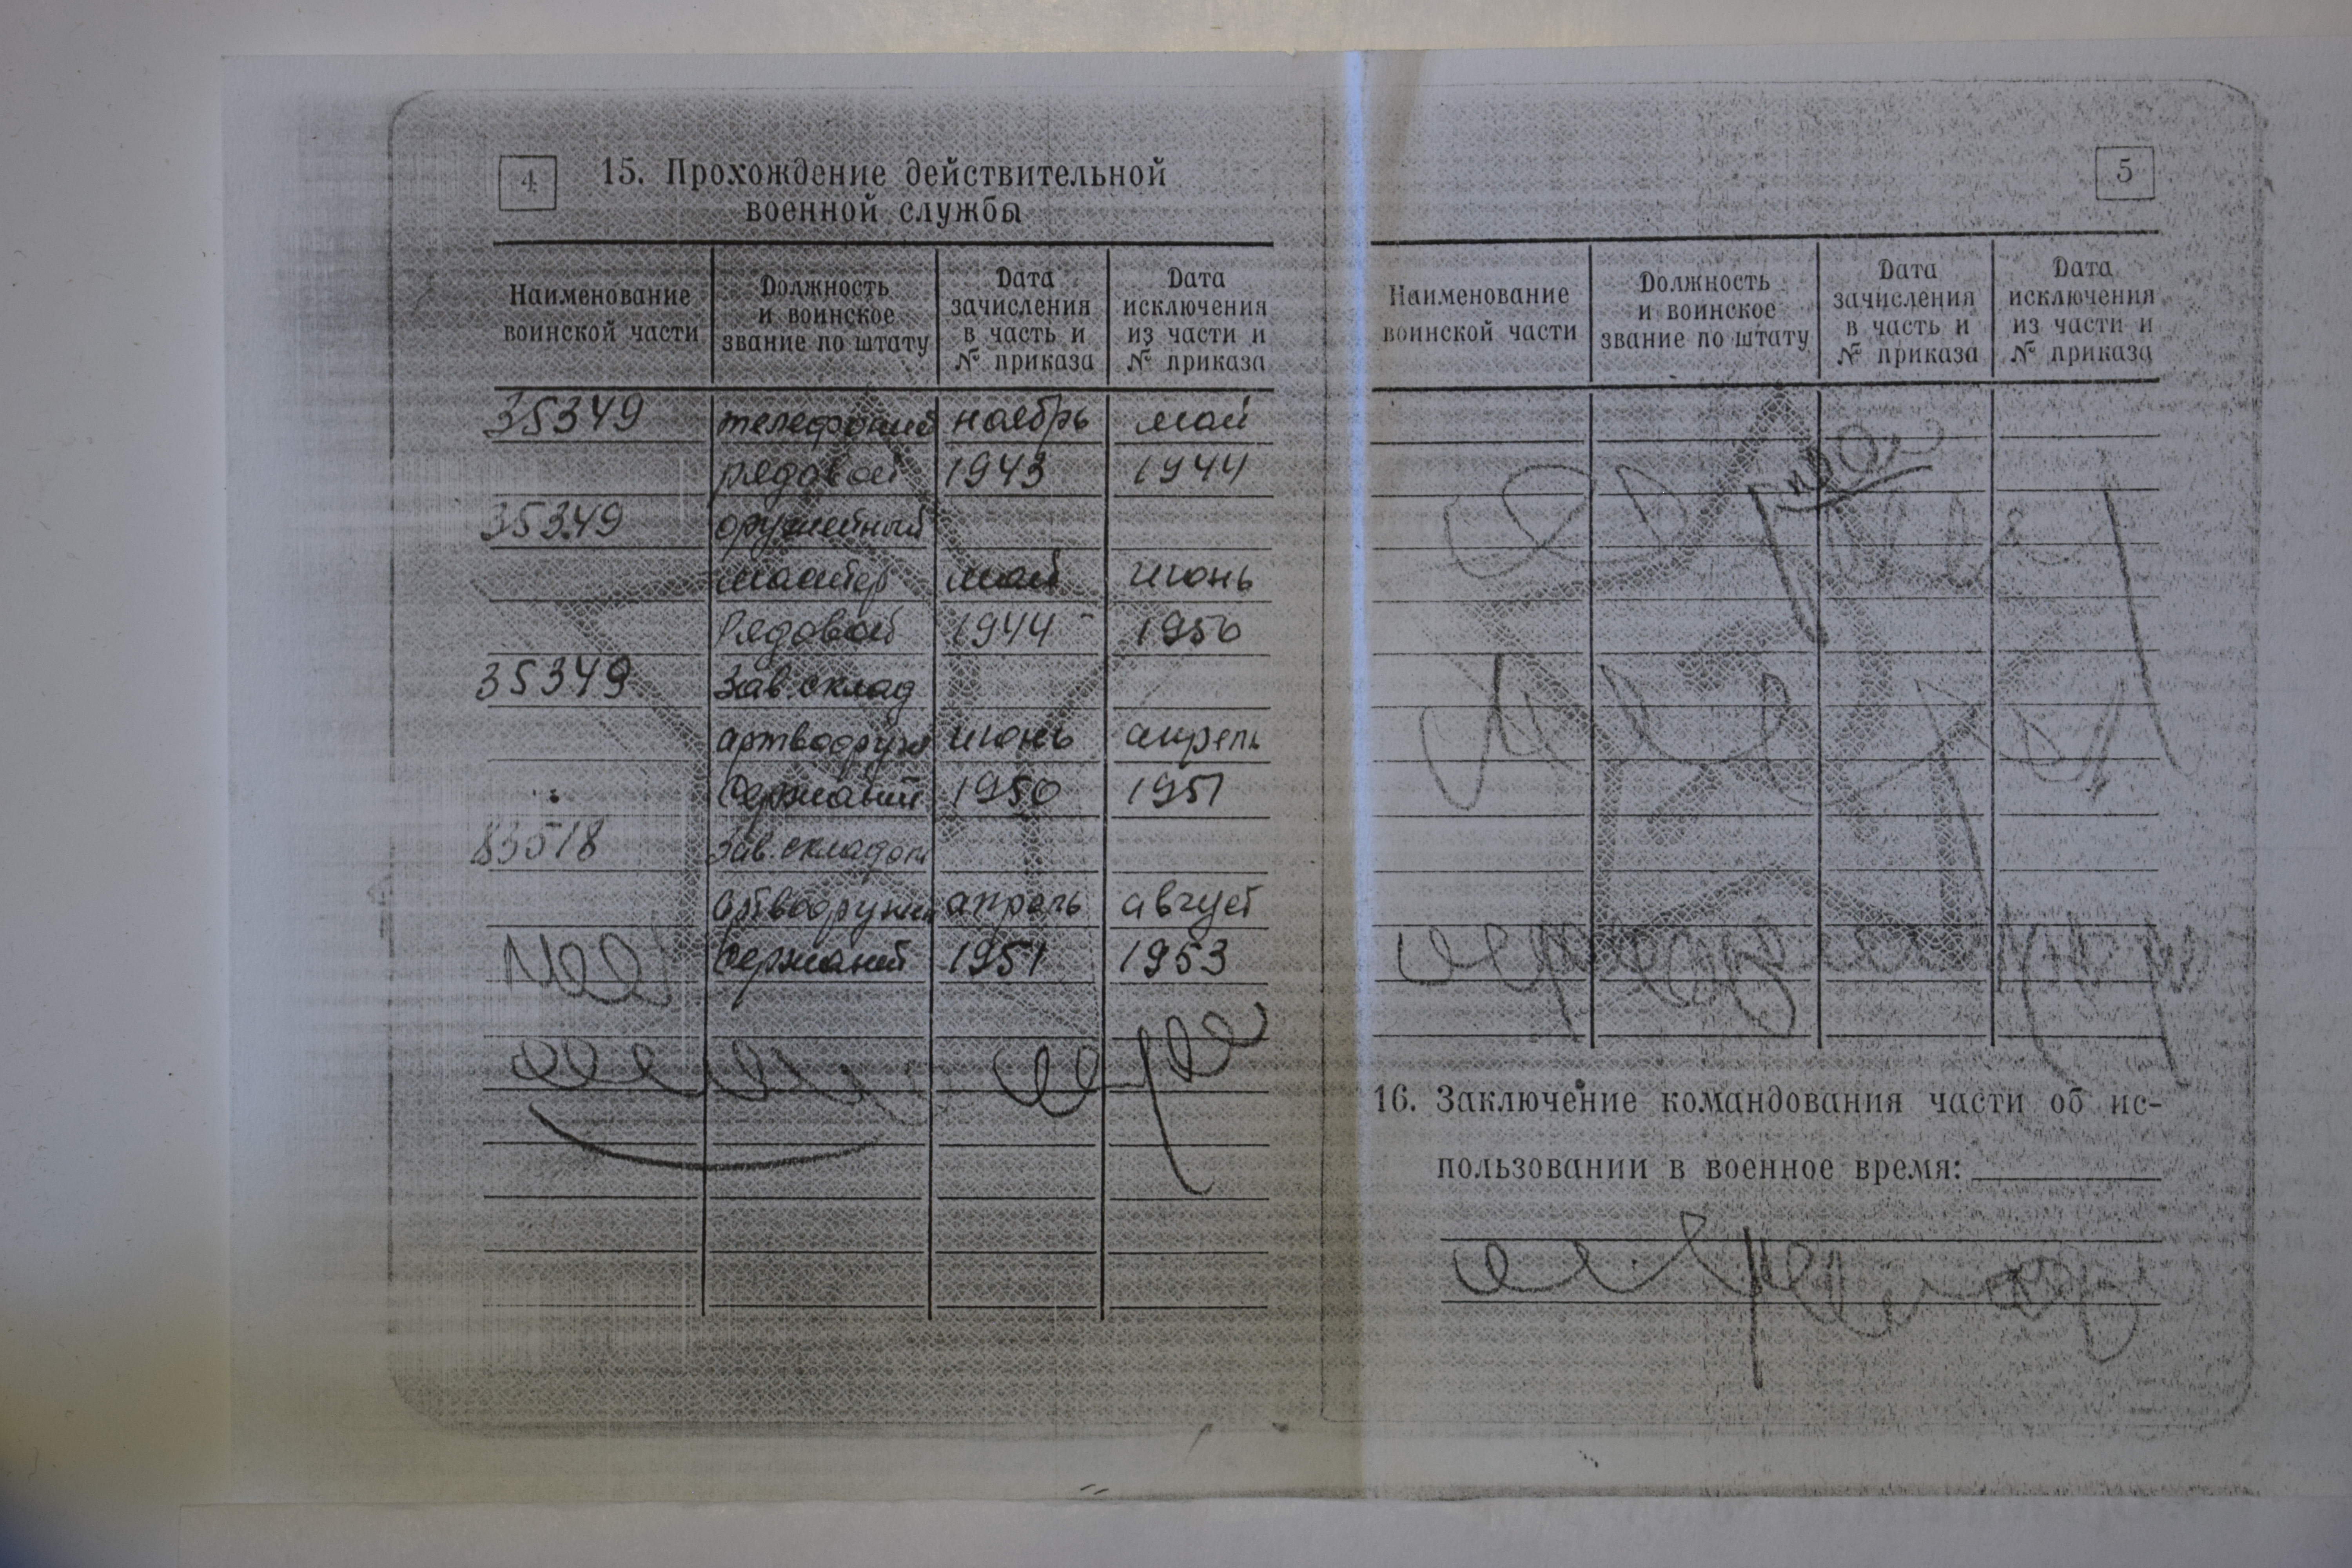 4
15. Прохождение действительной
военной службы
Наименование
воинской части
Должность
и воинское
звание по штату
Дата
зачисления
в часть и
№ приказа
Дата
исключения
из части и
№ приказа
35349 телефонист ноябрь май
рядовой 1943 1944
35349 оружейный
мастер май июнь
Рядовой 1944 1950
35349 Зав. склад
артвооруж июнь апрель
Сержант 1950 1951
83518 Зав. складом
артвооружен апрель август
Сержант 1951 1953
5
Наименование
воинской части
Должность
и воинское
звание по штату
Дата
зачисления
в часть и
№ приказа
Дата
исключения
из части и
№ приказа
16. Заключение командования части об ис-
пользовании в военное время: